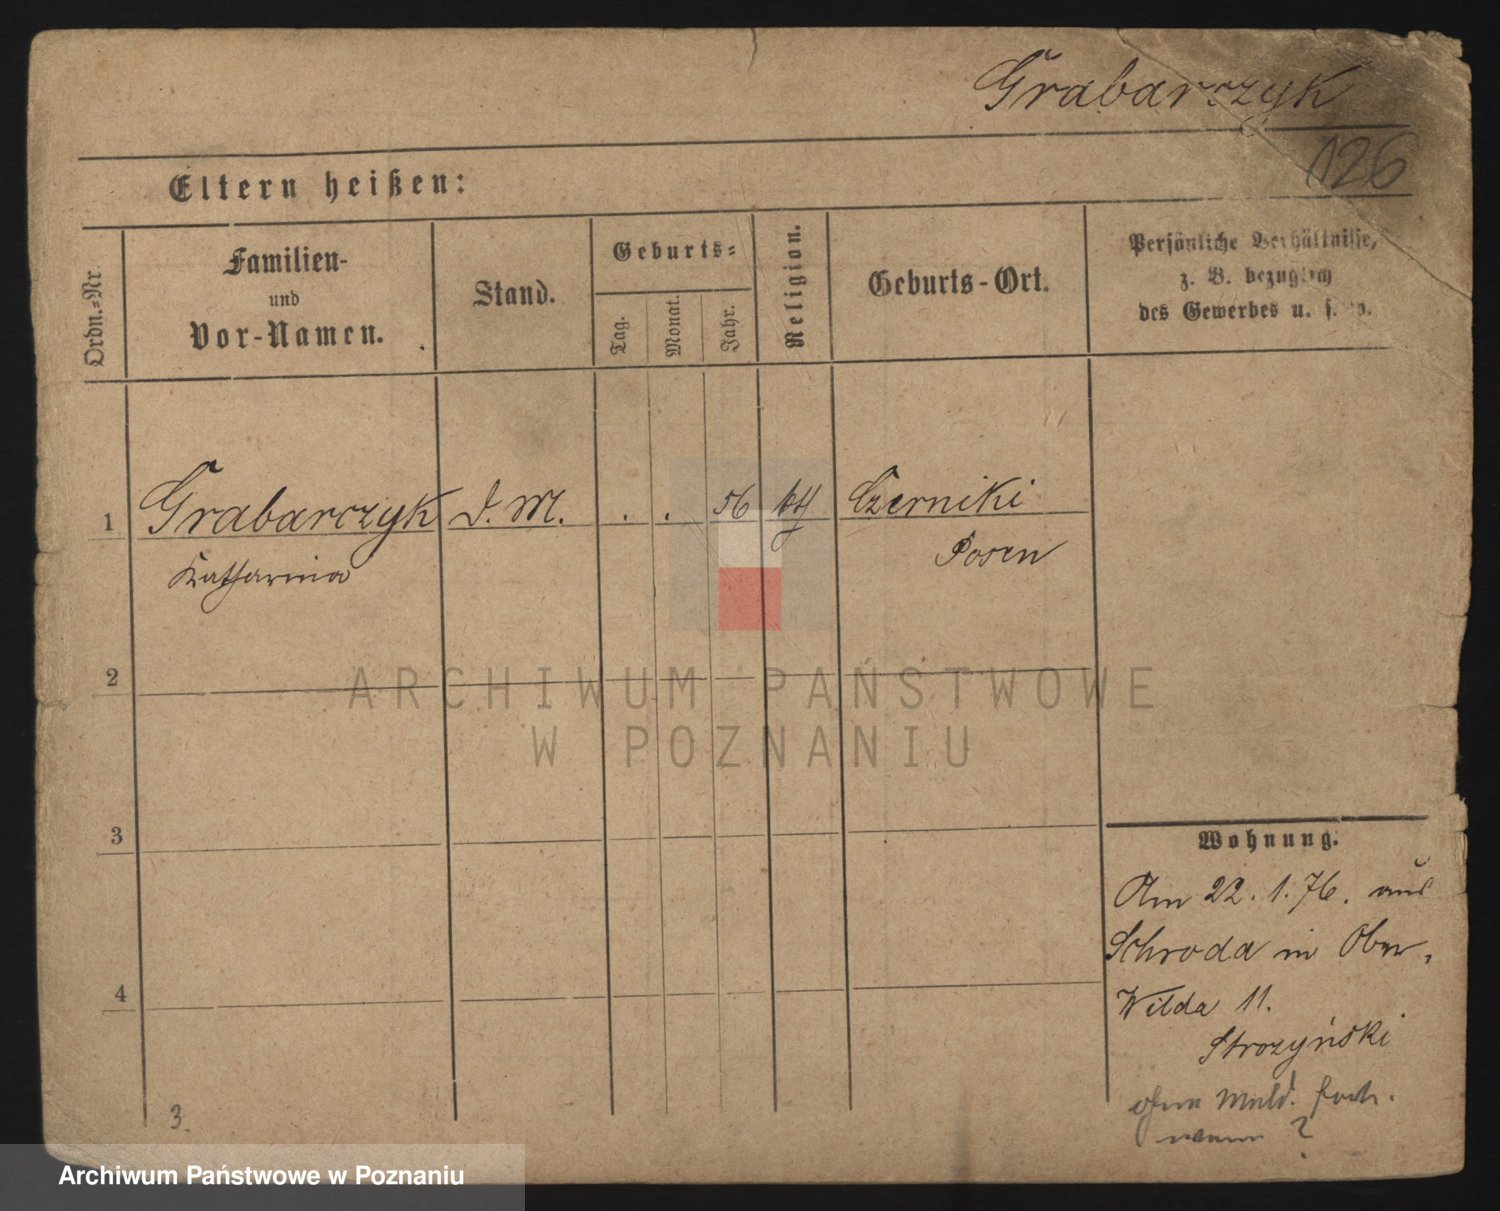 Grabarczyk
126
Eltern heißen:
Ordn.-Nr.
Familien-
und
Vor-Namen.
Stand.
Geburts-
Tag.
Monat.
Jahr.
Religion.
Geburts-Ort.
Persönliche Verhältnisse,
z. B. bezüglich
des Gewerbes u. s. w.
1 Grabarczyk D. M. . . 56 kth Czerniki
Katharina
Posen
2
3
4
ARCHIWUM PAŃSTWOWE
W POZNANIU
Wohnung.
Am 22. 1. 76. aus
Schroda in Ober-
Wilda 11.
Strozyński
ohne Meld. fort.
wann ?
3.
Archiwum Państwowe w Poznaniu